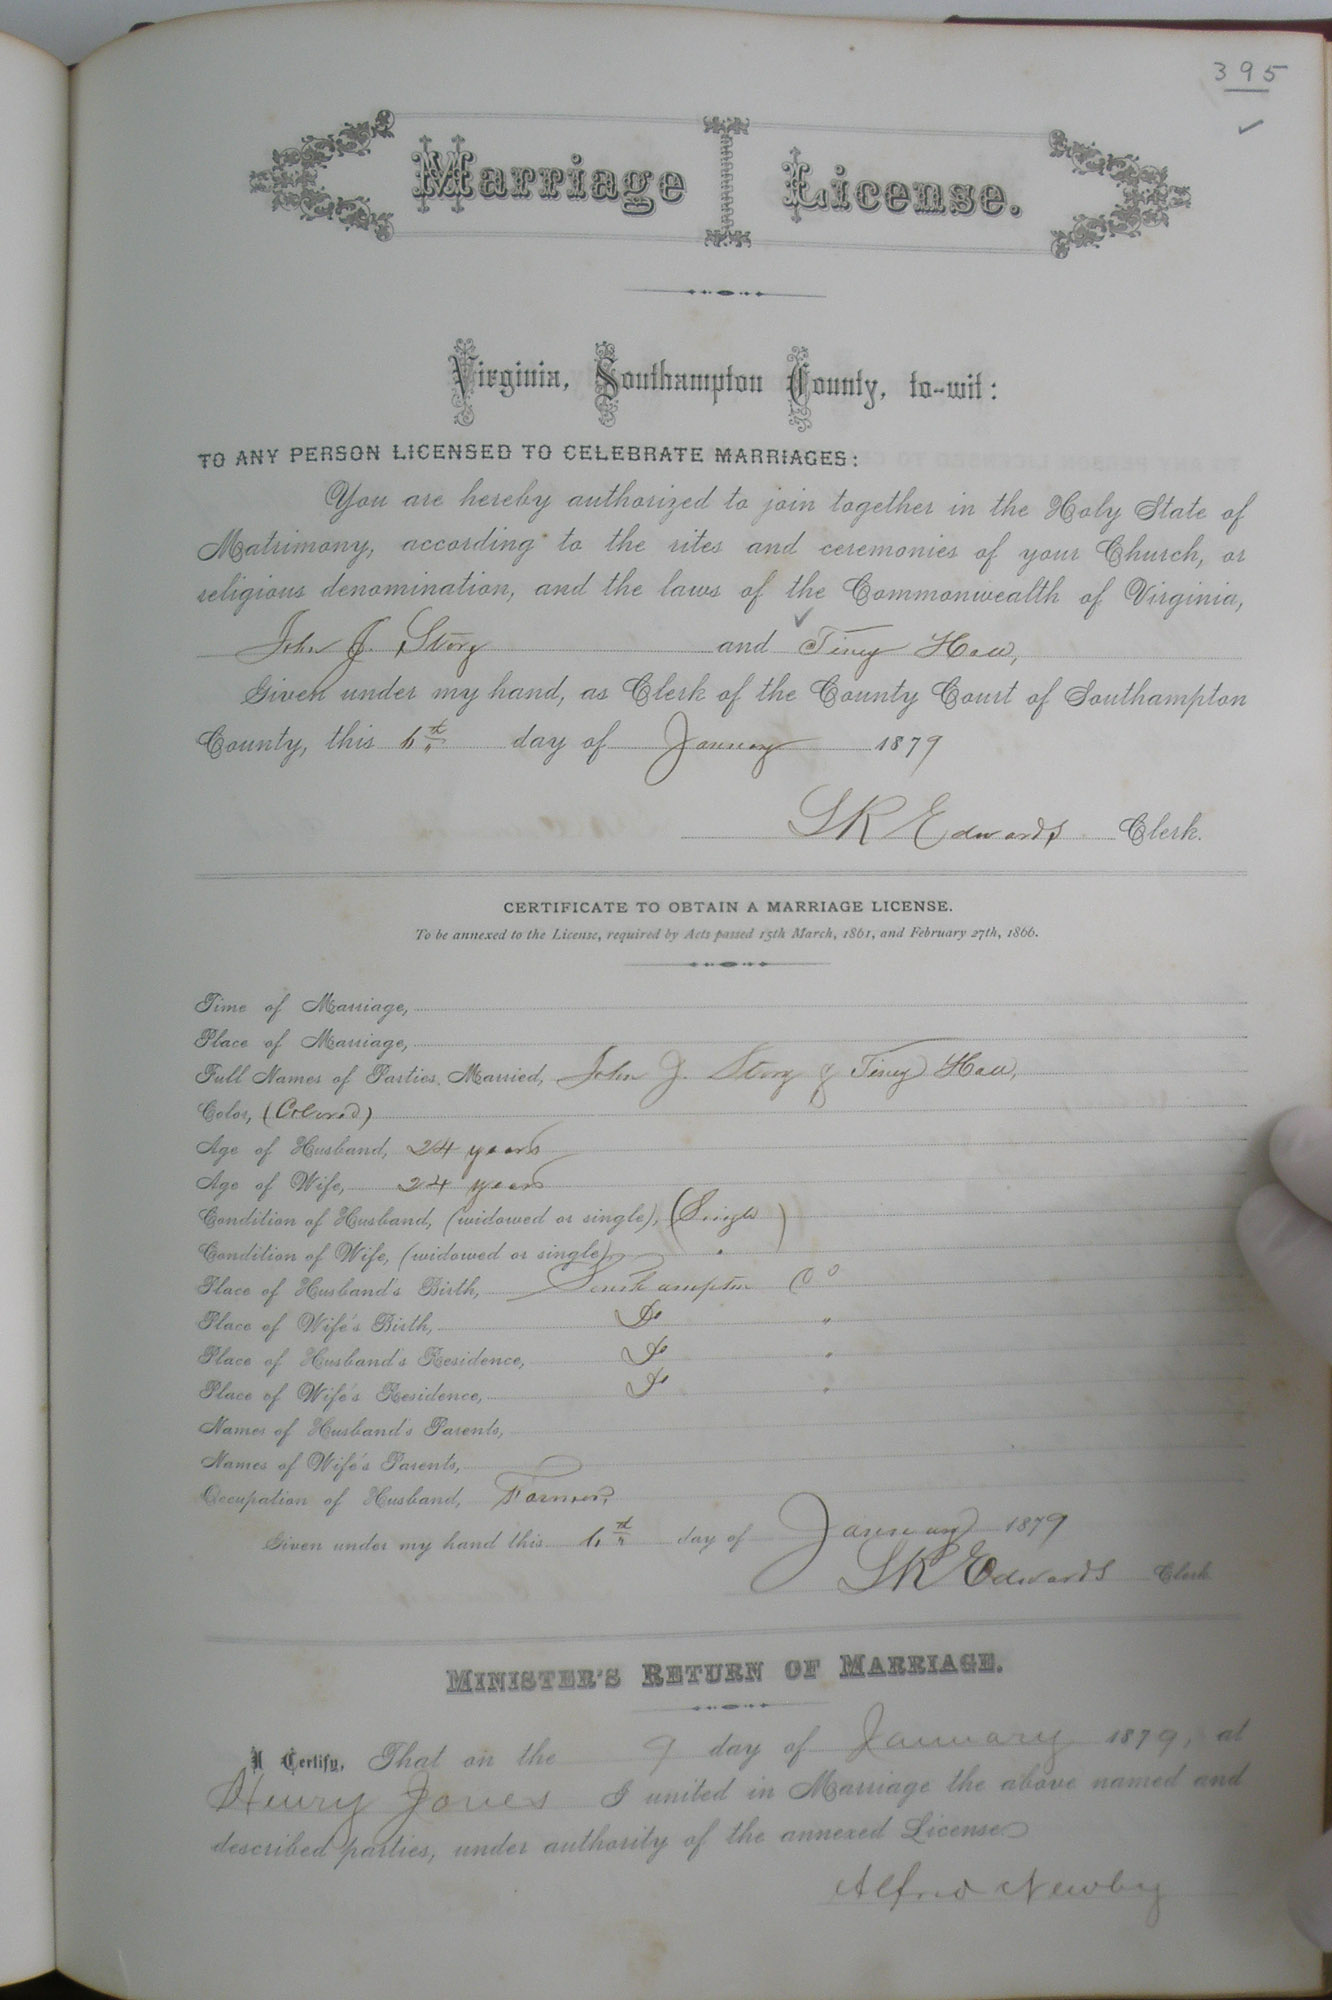 395
Marriage License.
Virginia, Southampton County, to-wit:
TO ANY PERSON LICENSED TO CELEBRATE MARRIAGES:
You are hereby authorized to join together in the Holy State of
Matrimony, according to the rites and ceremonies of your Church, or
religious denomination, and the laws of the Commonwealth of Virginia,
John J. Story and Tiney
Given under my hand, as Clerk of the County Court of Southampton
County, this 6th day of January 1879
S K Edwards Clerk.
CERTIFICATE TO OBTAIN A MARRIAGE LICENSE.
To be annexed to the License, required by Acts passed 15th March, 1861, and February 27th, 1866.
Time of Marriage,
Place of Marriage,
Full Names of Parties Married, John J. Story & Tiney
Color, (Colored)
Age of Husband, 24 years
Age of Wife, 24 years
Condition of Husband, (widowed or single), (Single)
Condition of Wife, (widowed or single) "
Place of Husband's Birth, Southampton Co
Place of Wife's Birth, Do "
Place of Husband's Residence, Do "
Place of Wife's Residence, Do "
Names of Husband's Parents,
Names of Wife's Parents,
Occupation of Husband, Farmer,
Given under my hand this 6th day of January 1879
S K Edwards Clerk
MINISTER'S RETURN OF MARRIAGE.
I Certify, That on the 9 day of January 1879, at
Henry Jones I united in Marriage the above named and
described parties, under authority of the annexed License
Alfred Newby